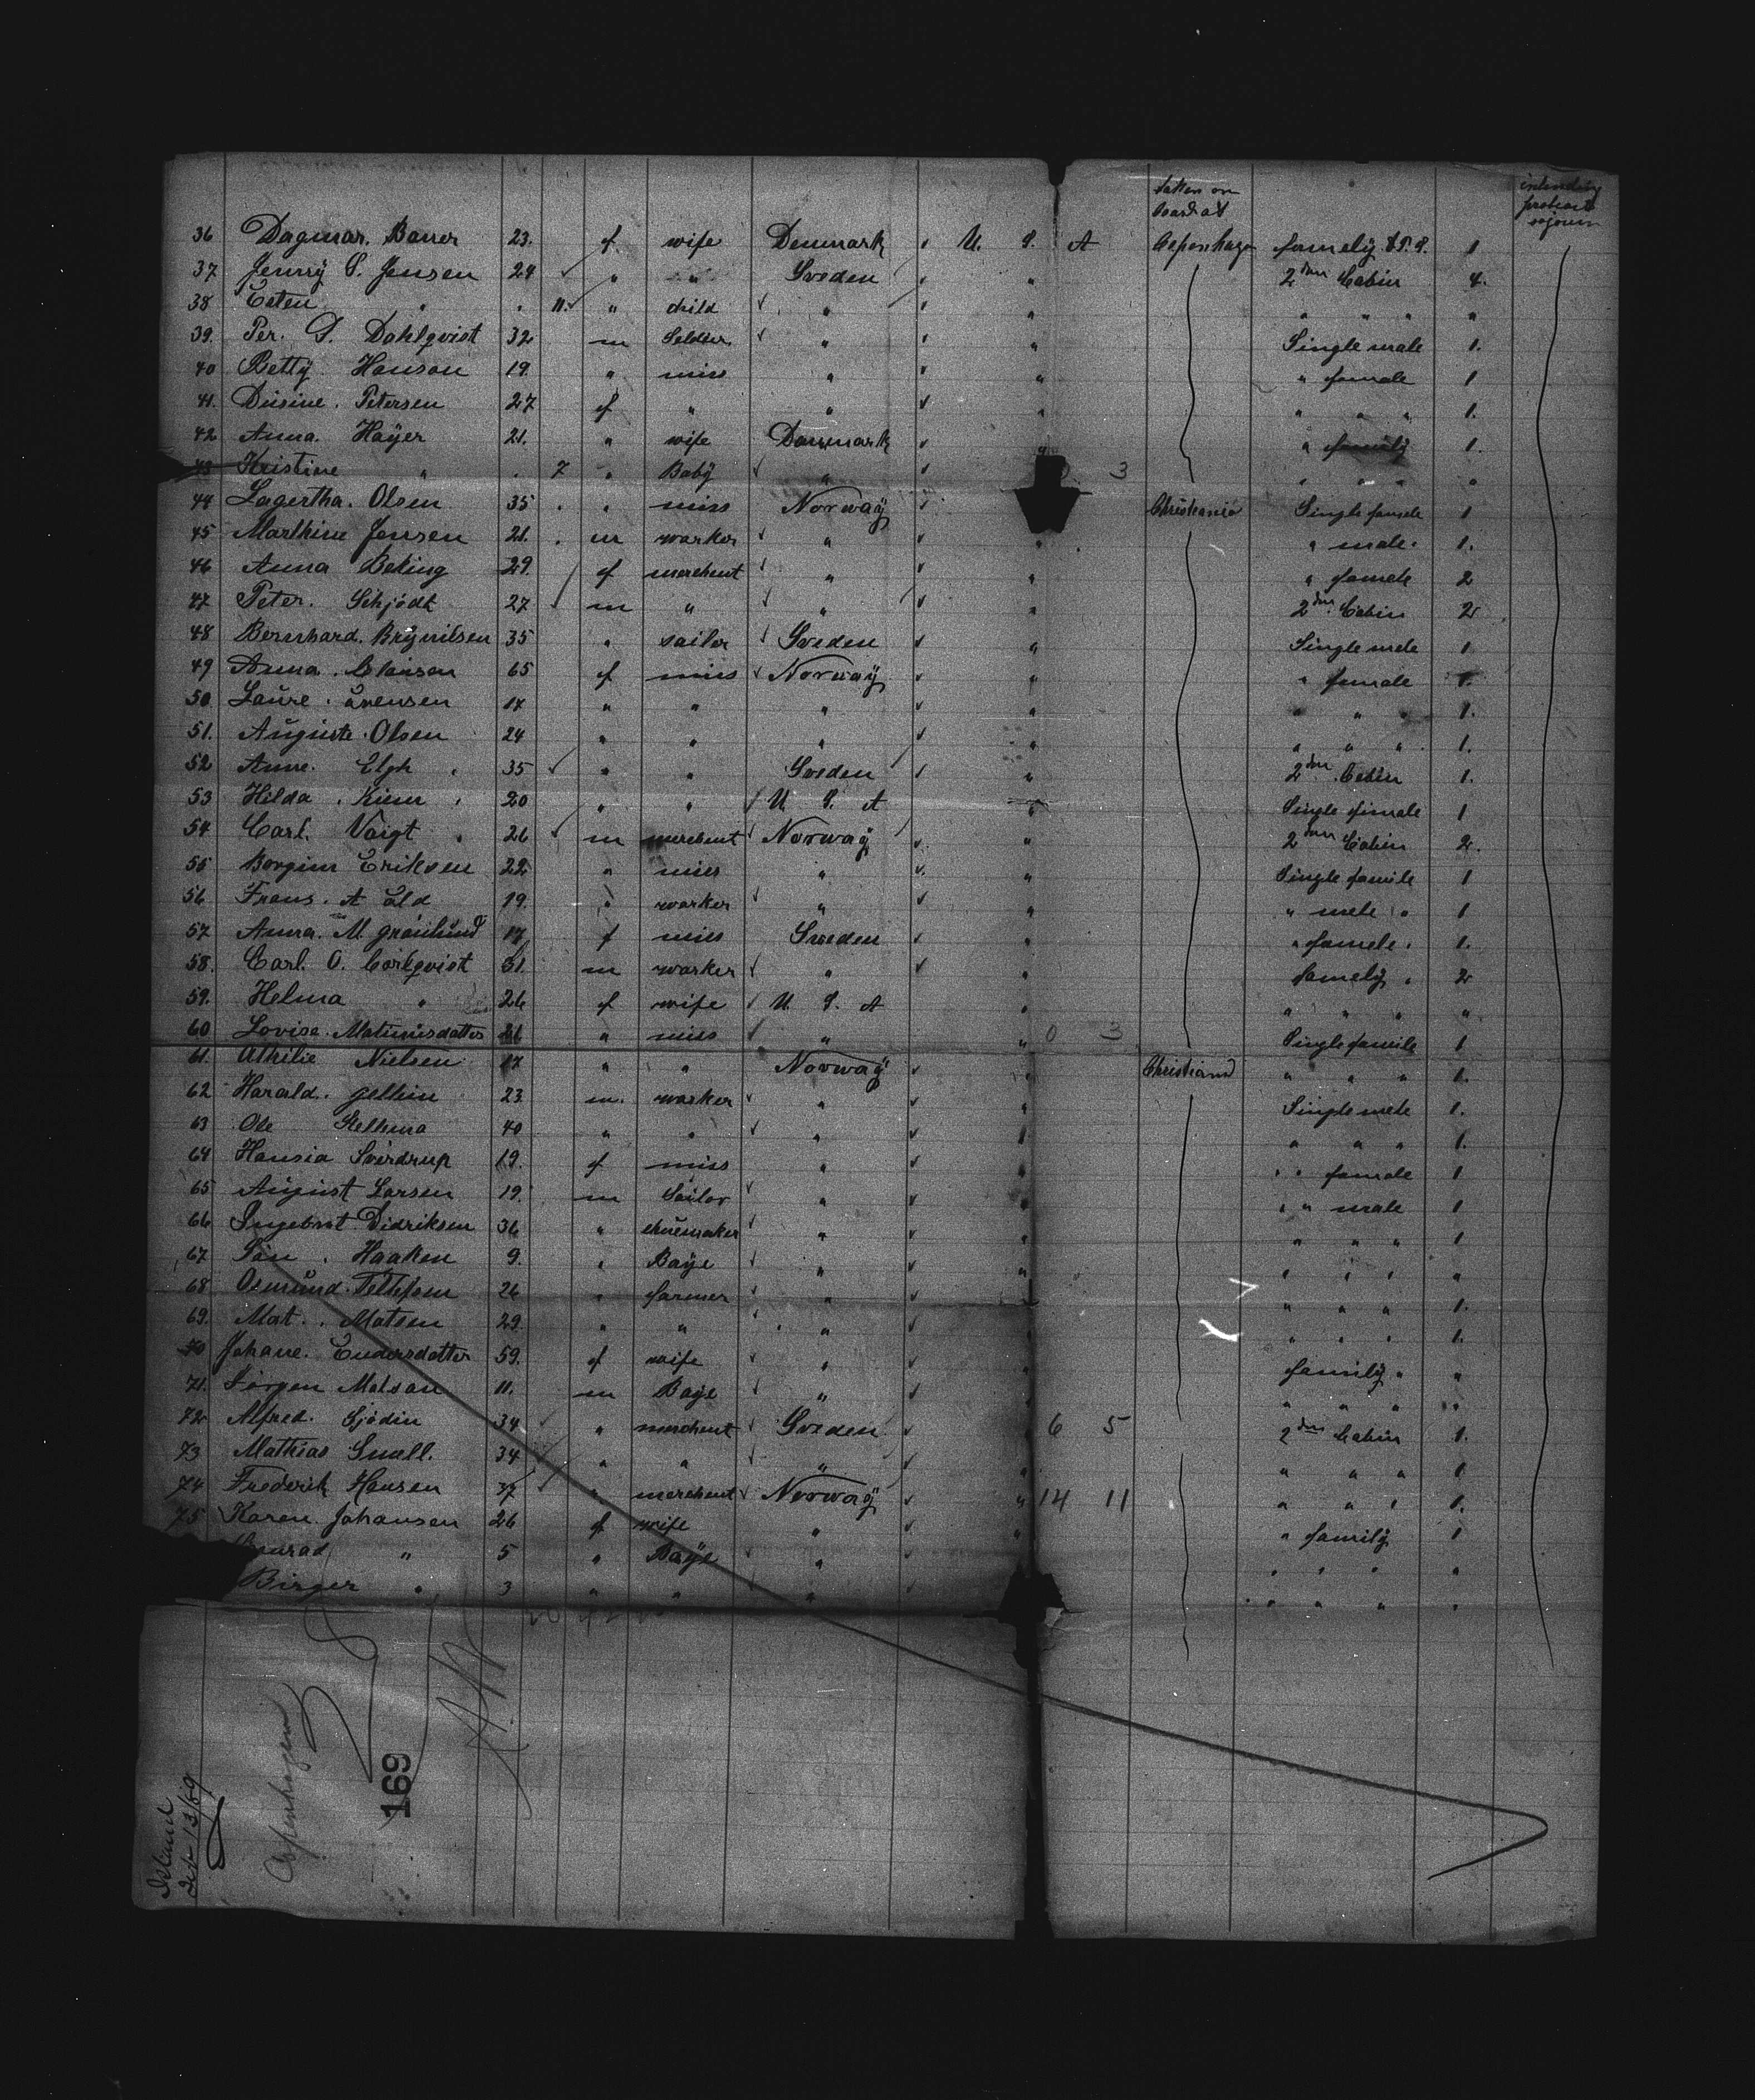 taken on
board at
intending
protract
sojourn
36 Dagmar. Baner 23. f wife Denmark U. S. A Copenhagen famely St. P. 1
37 Jenny S. Jensen 24 " " Sveden " 2den Cabin 4.
38 " . 11. " child " " " " " "
39. Per. D. Dahlqvist 32 m " " Single male 1.
40 Betty Hanson 19. " miss " " " female 1
41. Petersen 27 f " " " " " " 1.
42 Anna. Hayer 21. " wife Danmark " " famely 1.
43 Kristine " . 7 " Baby " 3 " " " "
44 Lagertha. Olsen 35 . " miss Norway Christiania Single famele 1
45 Marthine Jensen 21. . m warker " " " male. 1.
46 Anna Beking 29. f merchent " " " famele 2
47 Peter. Schjödt 27 m " " " 2den Cabin 2
48 Bernhard. Brynilsen 35 " sailor Sveden " Single mele 1
49 Anna. 65 f miss Norway " " female 1.
50 Laure. 17 " " " " " " " 1.
51. Auguste. Olsen 24 " " " " " " " 1.
52 Anne. Elgh 35 " " Sveden " 2den Cabin 1.
53 Hilda. 20 " " U. S. A " Single female 1
54 Carl. Voigt 26 m merchent Norway " 2den Cabin 2.
55 Eriksen 22 " miss " " Single famile 1
56 Frans. A 19. " warker " " " mele " 1
57 Anna. M. grönlund 17 f miss Sweden " " famele. 1.
58. Carl. O. Carlqvist 31. m warker " " famely " 2
59. Helma " 26 f wife U. S. A " " " " "
60 Lovise. 21 " miss " " 0 3 Single famile 1
61. Nielsen 17 " " Norway " Christiand " " " 1.
62 Harald. 23 m. warker " " Single mele 1.
63 Ole 40 " " " " " " " 1.
64 Hansia Sverdrup 19. f miss " " " " famale 1
65 August Larsen 19. m Sailor " " " " male 1
66 Didriksen 36 " " " " " " 1
67 Sön. Haaken 9. " Baye " " " " " "
68 Osmund. Tellefsen 26 " farmer " " " " " 1.
69. Mat. Matsen 29. " " " " " " " 1.
70 Johane. Endersdatter 59. f wife " " family " "
71. Jörgen Matsan 11. m Baye " " " " " "
72 Alfred. Sjödin 34 " merchent Sveden 6 5 2den Cabin 1.
73 Mathias Snell. 34 " " " " " " " 1
74 Frederik Hansen 37 " merchent Norway " 14 11 " " " 1.
75 Karen Johansen 26 f wife " " " family 1
" 5 " Baye " " " " "
Birger " 3 " " " " " " "
Island
13/89
Copenhagen
169